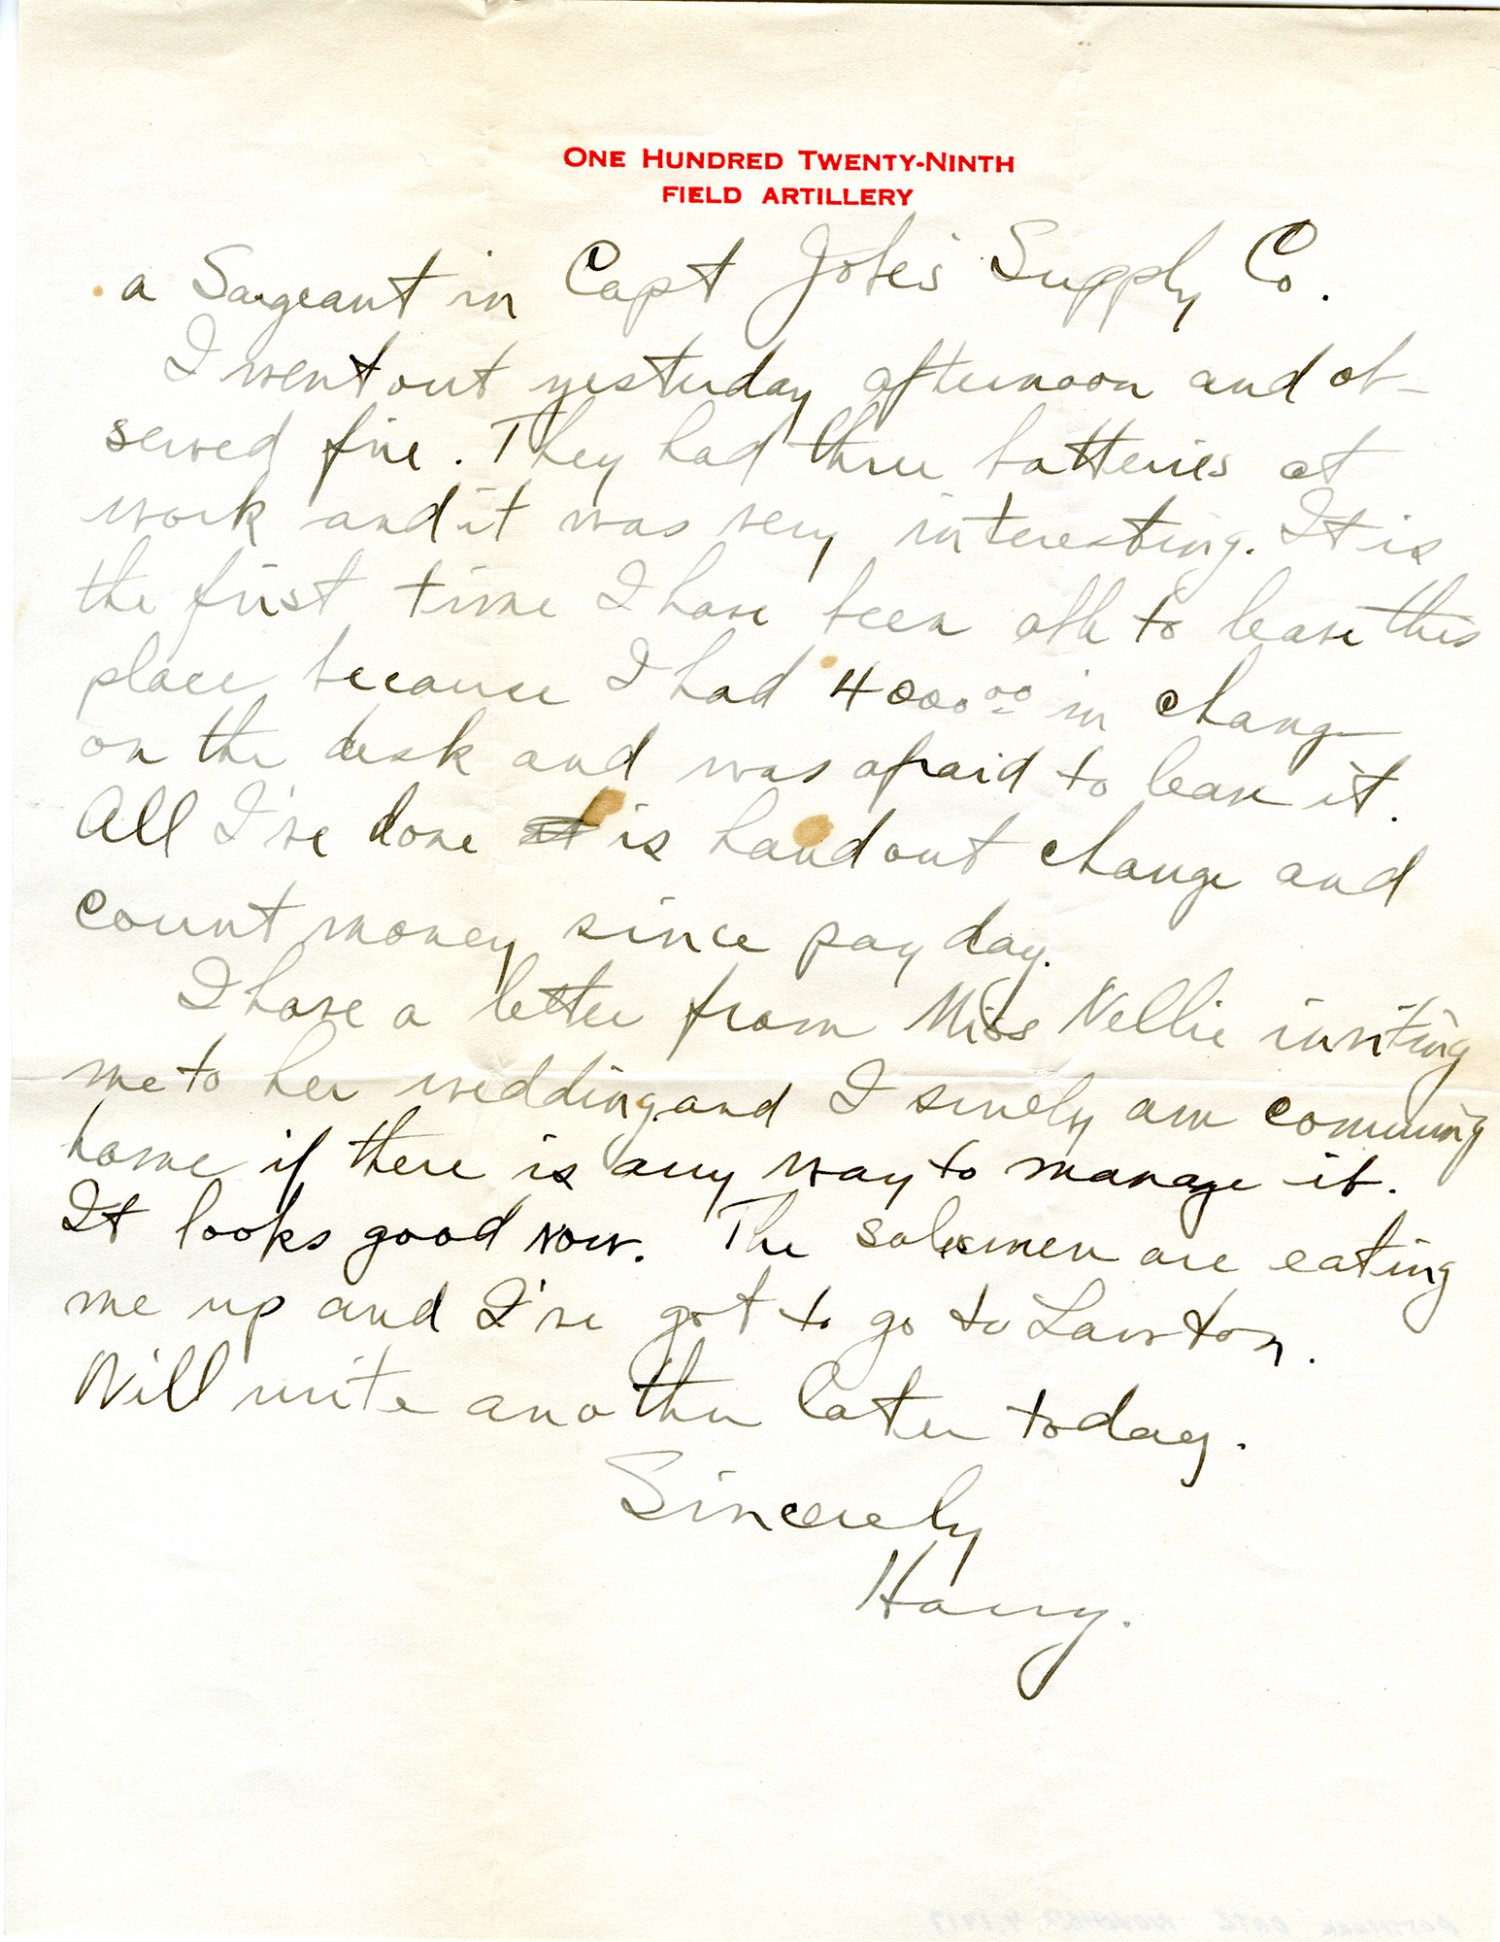 ONE HUNDRED TWENTY-NINTH
FIELD ARTILLERY
a Sargeant in Capt Jobe's Supply Co.
I went out yesterday afternoon and ob-
served fire. They had three batteries at
work and it was very interesting. It is
the first time I have been able to leave this
place because I had 4000.00 in change
on the desk and was afraid to leave it.
All I've done is hand out change and
count money since pay day.
I have a letter from Miss Nellie inviting
me to her wedding and I surely am comming
home if there is any way to manage it.
It looks good now. The salesmen are eating
me up and I've got to go to Lawton.
Will write another later today.
Sincerely
Harry.
POSTMARK DATE NOVEMBER 9, 1917